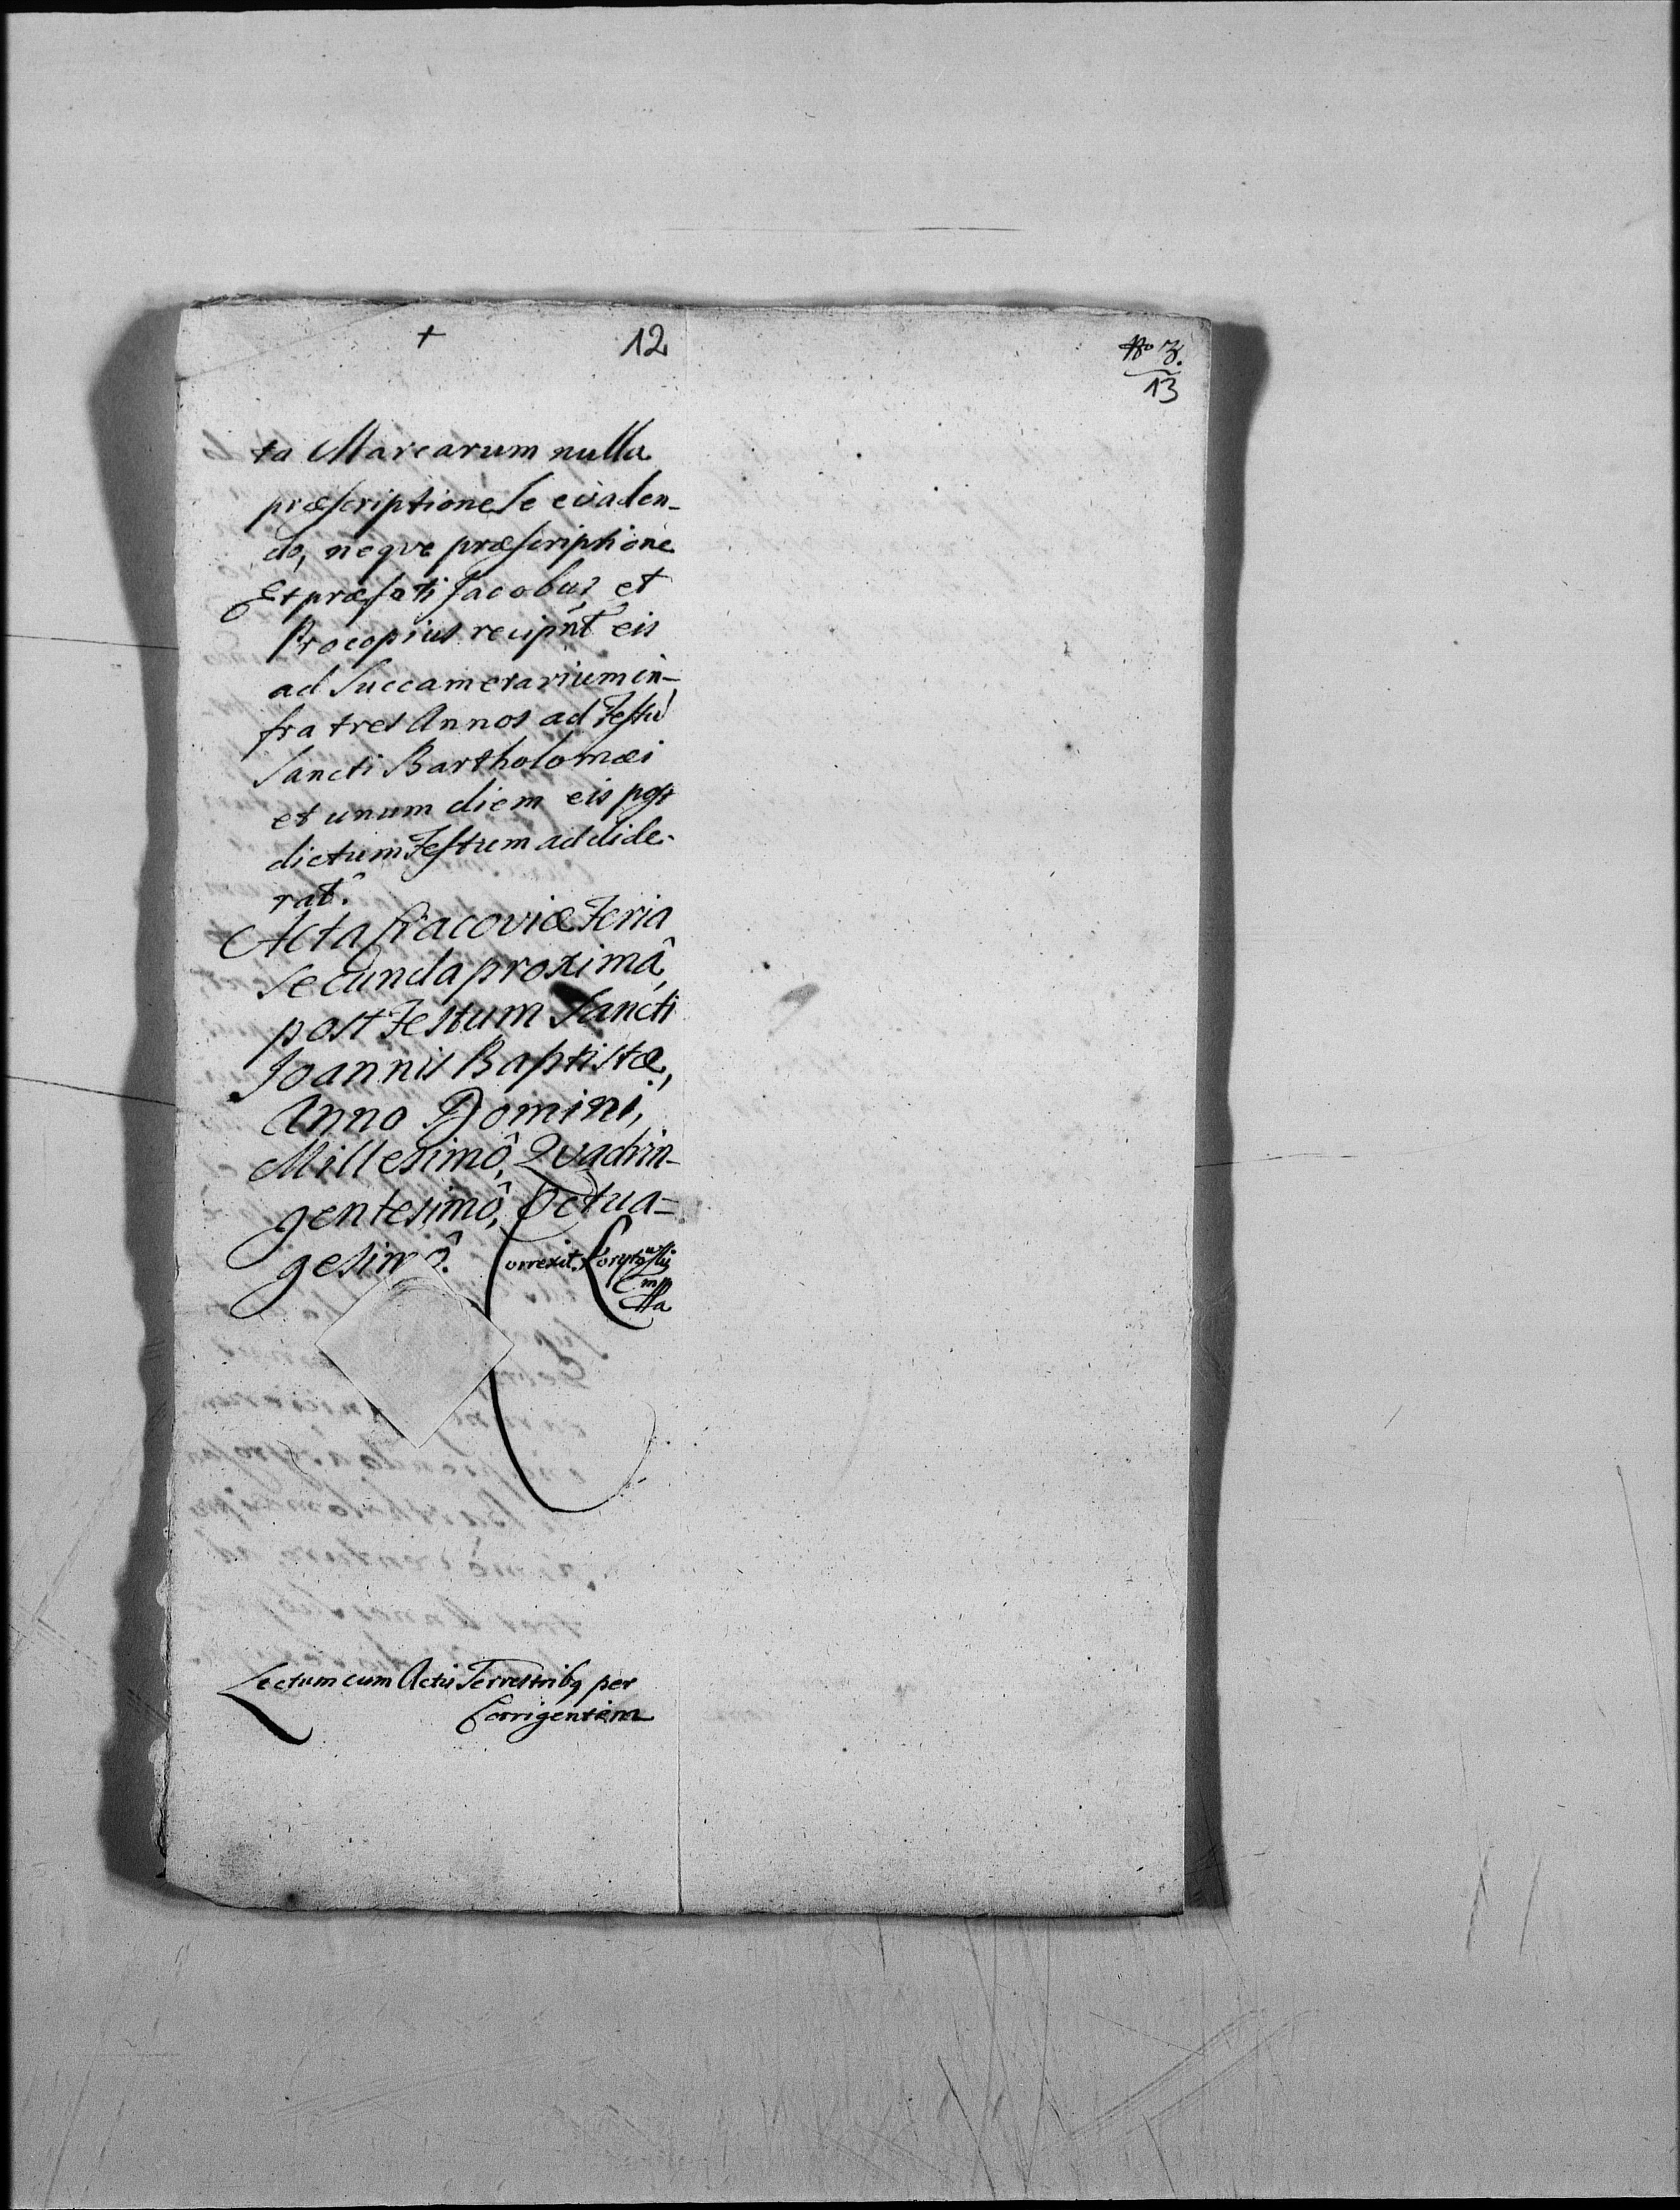 + 12
No 3.
13
ta Marcarum nulla
præscriptione se evaden-
do, neque præscriptione
Et præfati Jacobus et
Procopius recipnt eis
ad Succamerarium in-
fra tres Annos ad Festu
Sancti Bartholomæi
et unum diem eis post
dictum Festum addide-
rat.
Acta Cracoviæ Feria
Secunda proximâ,
post Festum Sancti
Joannis Baptistæ,
Anno Domini,
Millesimô, Quadrin-
gentesimô, Octua=
gesimô. Correxit
Lectum cum Actis Terrestribq per
Corrigentem